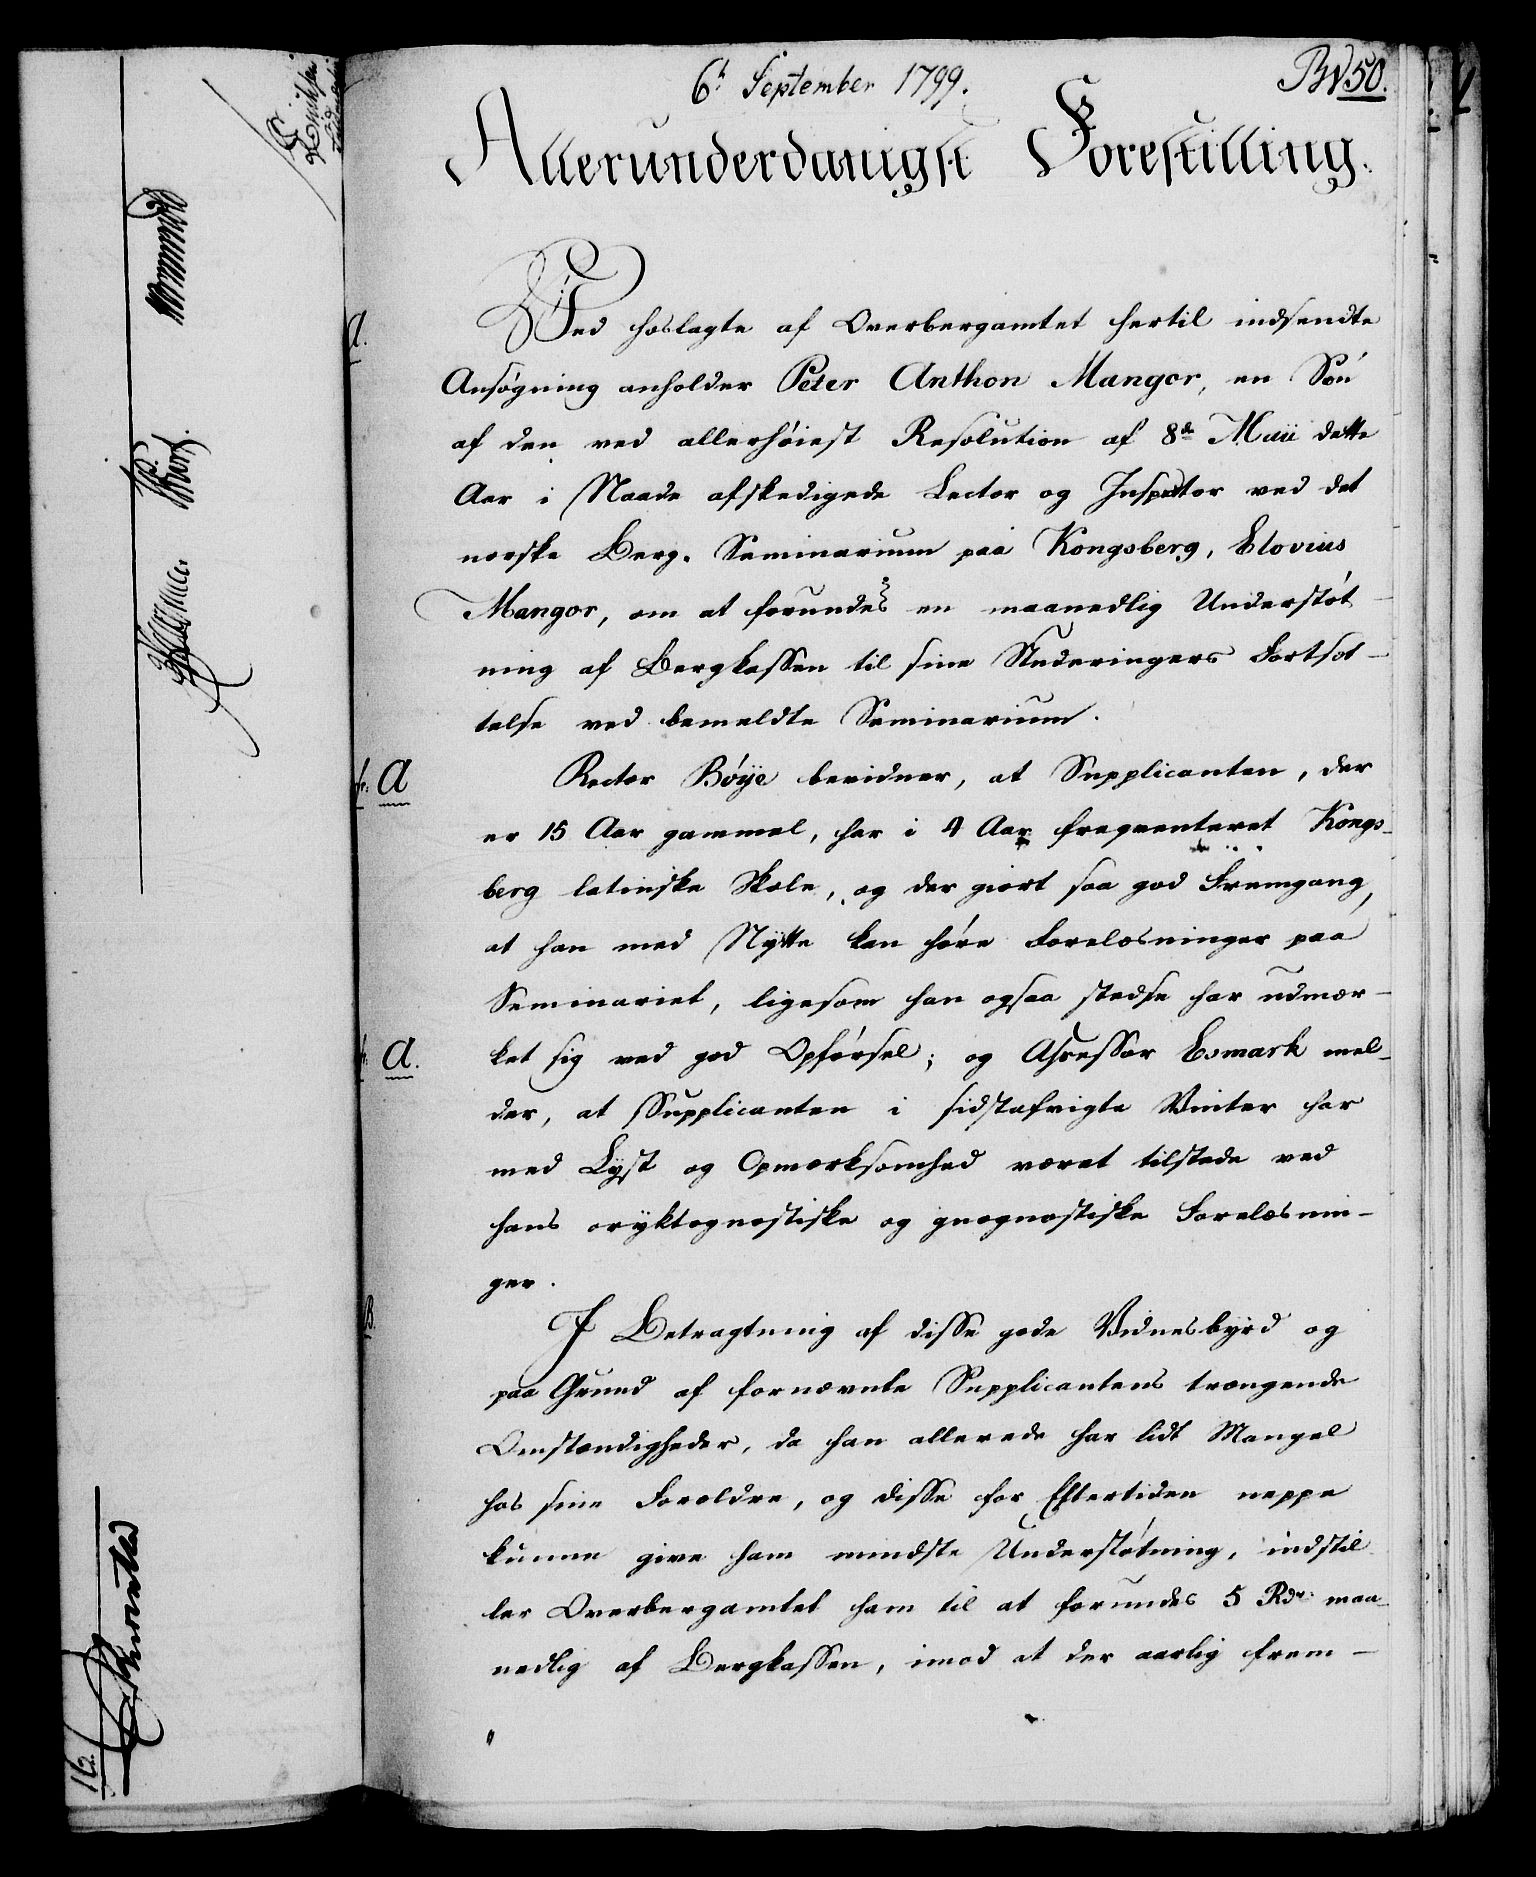 6t September 1799.
BW 50.
Allerunderdanigst Forestilling.
A.
Ved hoslagte af Overbergamtet hertil indsendte
Ansøgning anholder Peter Anthon Mangor, en Søn
af den ved allerhøiest Resolution af 8de Maii dette
Aar i Naade afskedigede Lector og Inspector ved det
norske Berg-Seminarium paa Kongsberg, Elovius
Mangor, om at forundes en maanedlig Understøt-
ning af Bergkassen til sine Studeringers Fortsæt-
telse ved bemeldte Seminarium.
A
Rector Böye bevidner, at Supplicanten, der
er 15 Aar gammel, har i 4 Aar freqventeret Kongs-
berg latinske Skole, og der giort saa god Fremgang,
at han med Nytte kan høre Forelæsninger paa
Seminariet, ligesom han ogsaa stedse har udmær-
A.
ket sig ved god Opførsel; og Assessor Esmark mel-
der, at Supplicanten i sidstafvigte Vinter har
med Lyst og Opmærksomhed været tilstede ved
hans oryktognostiske og geognostiske Forelæsnin-
ger.
B.
I Betragtning af disse gode Vidnesbyrd og
paa Grund af fornævnte Supplicantens trængende
Omstændigheder, da han allerede har lidt Mangel
hos sine Forældre, og disse for Eftertiden neppe
kunne give ham mindste Understøtning, indstil
ler Overbergamtet ham til at forundes 5 Rdr. maa-
nedlig af Bergkassen, imod at der aarlig frem-